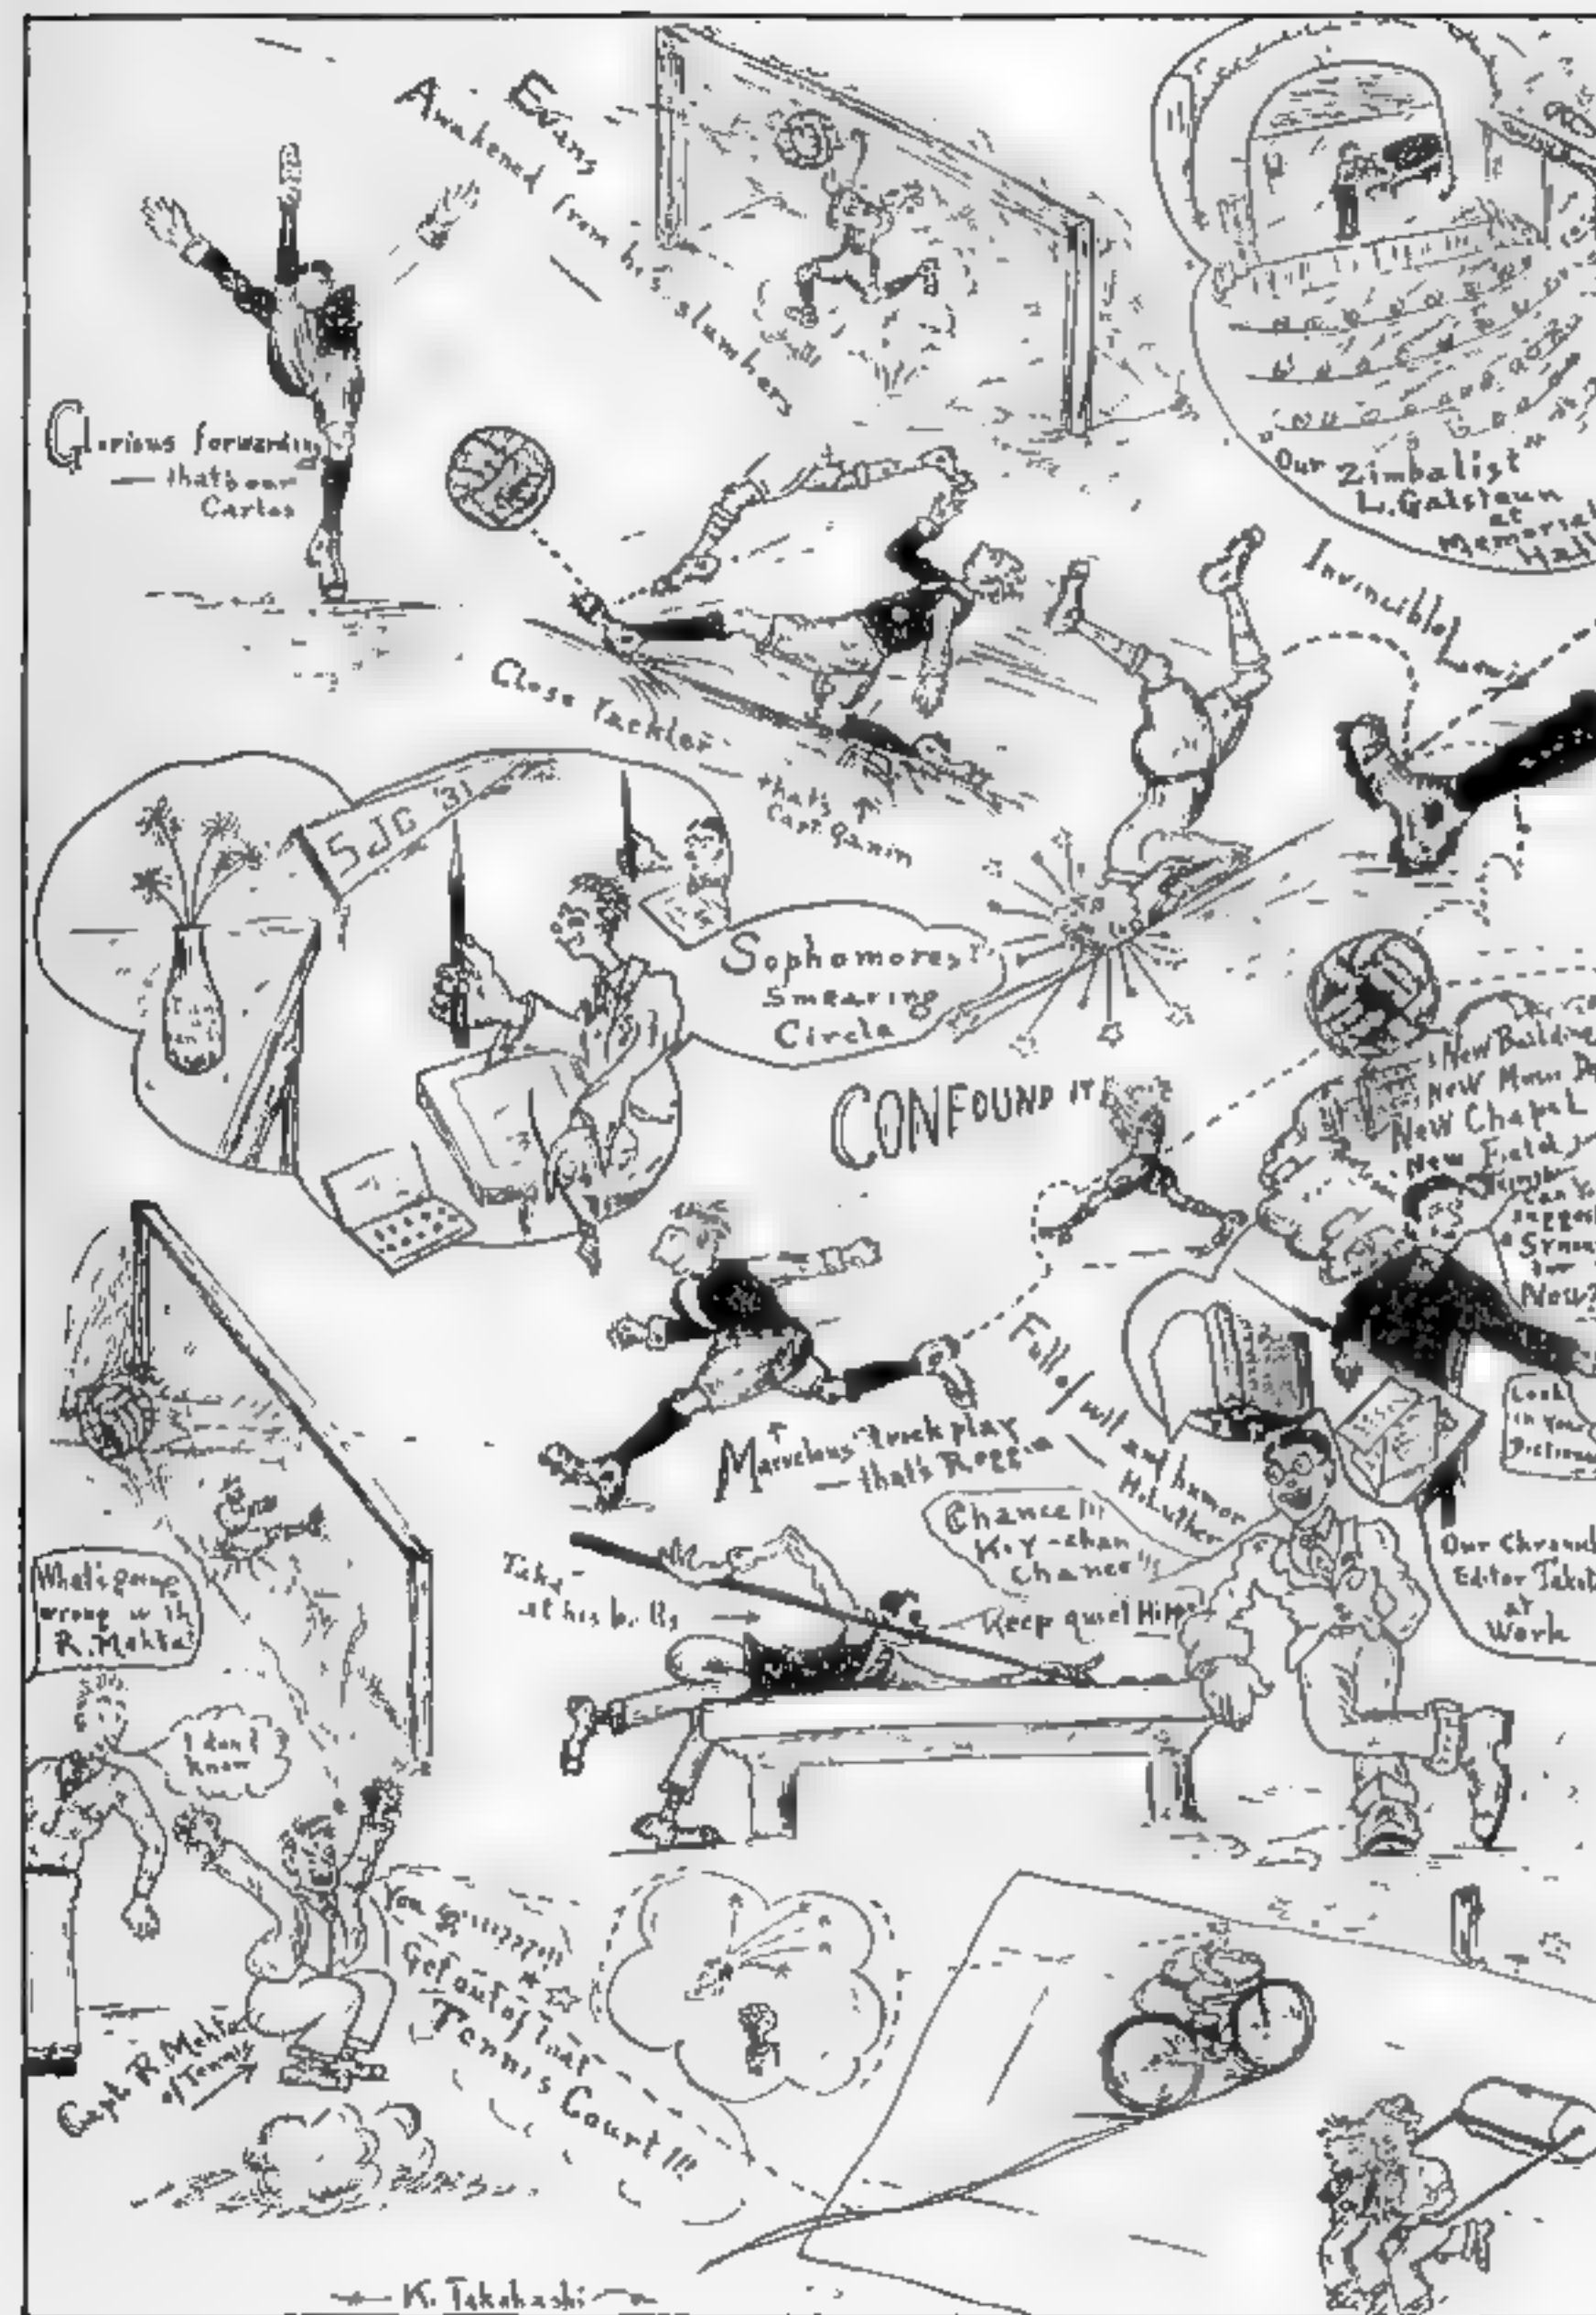 Evans
Awakened from his slumbers
Glorious forwarding
— that's our
Carlos
Our "Zimbalist"
L. Galstaun
at
Memorial
Hall
Invincible
Close tackler —
that's
Capt. Ganin
SJC '31
Sophomores
Smearing
Circle
CONFOUND IT
New Building
New Music
New Chapel
New Field
Can
suggest
a
for
New?
Look
in your
Our
Editor
at
Work
Marvelous trick play
— that's Roggin
Full of wit and humor
H. Luther
Chance!!!
K.Y-chan
Chance!!!
Keep quiet
at his balls
What's going
wrong with
R. Mehta
I don't
know
You
Get out of that
Tennis Court!!!
Capt. R. Mehta
of Tennis
K. Takahashi